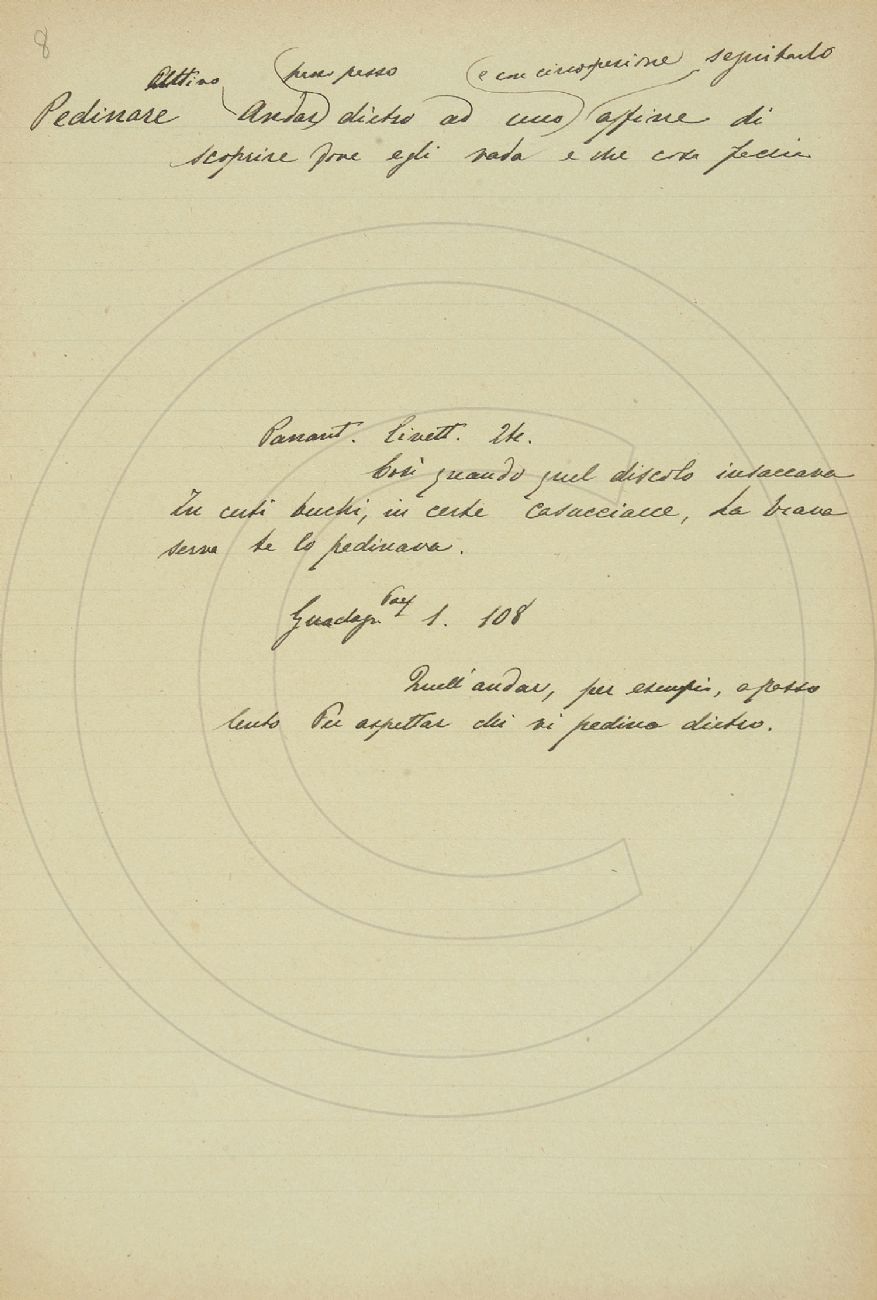 8
Attivo passo passo e con circospezione seguitarlo
Pedinare Andar dietro ad uno affine di
scoprire dove egli vada e che cosa faccia
Panant. Civett. 24.
Così quando quel discolo insaccava
In certi buchi, in certe casucciacce, La brava
serva te lo pedinava.
Guadagn. Poes 1. 108
Quell'andar, per esempio, a passo
lento Per aspettar chi vi pedina dietro.